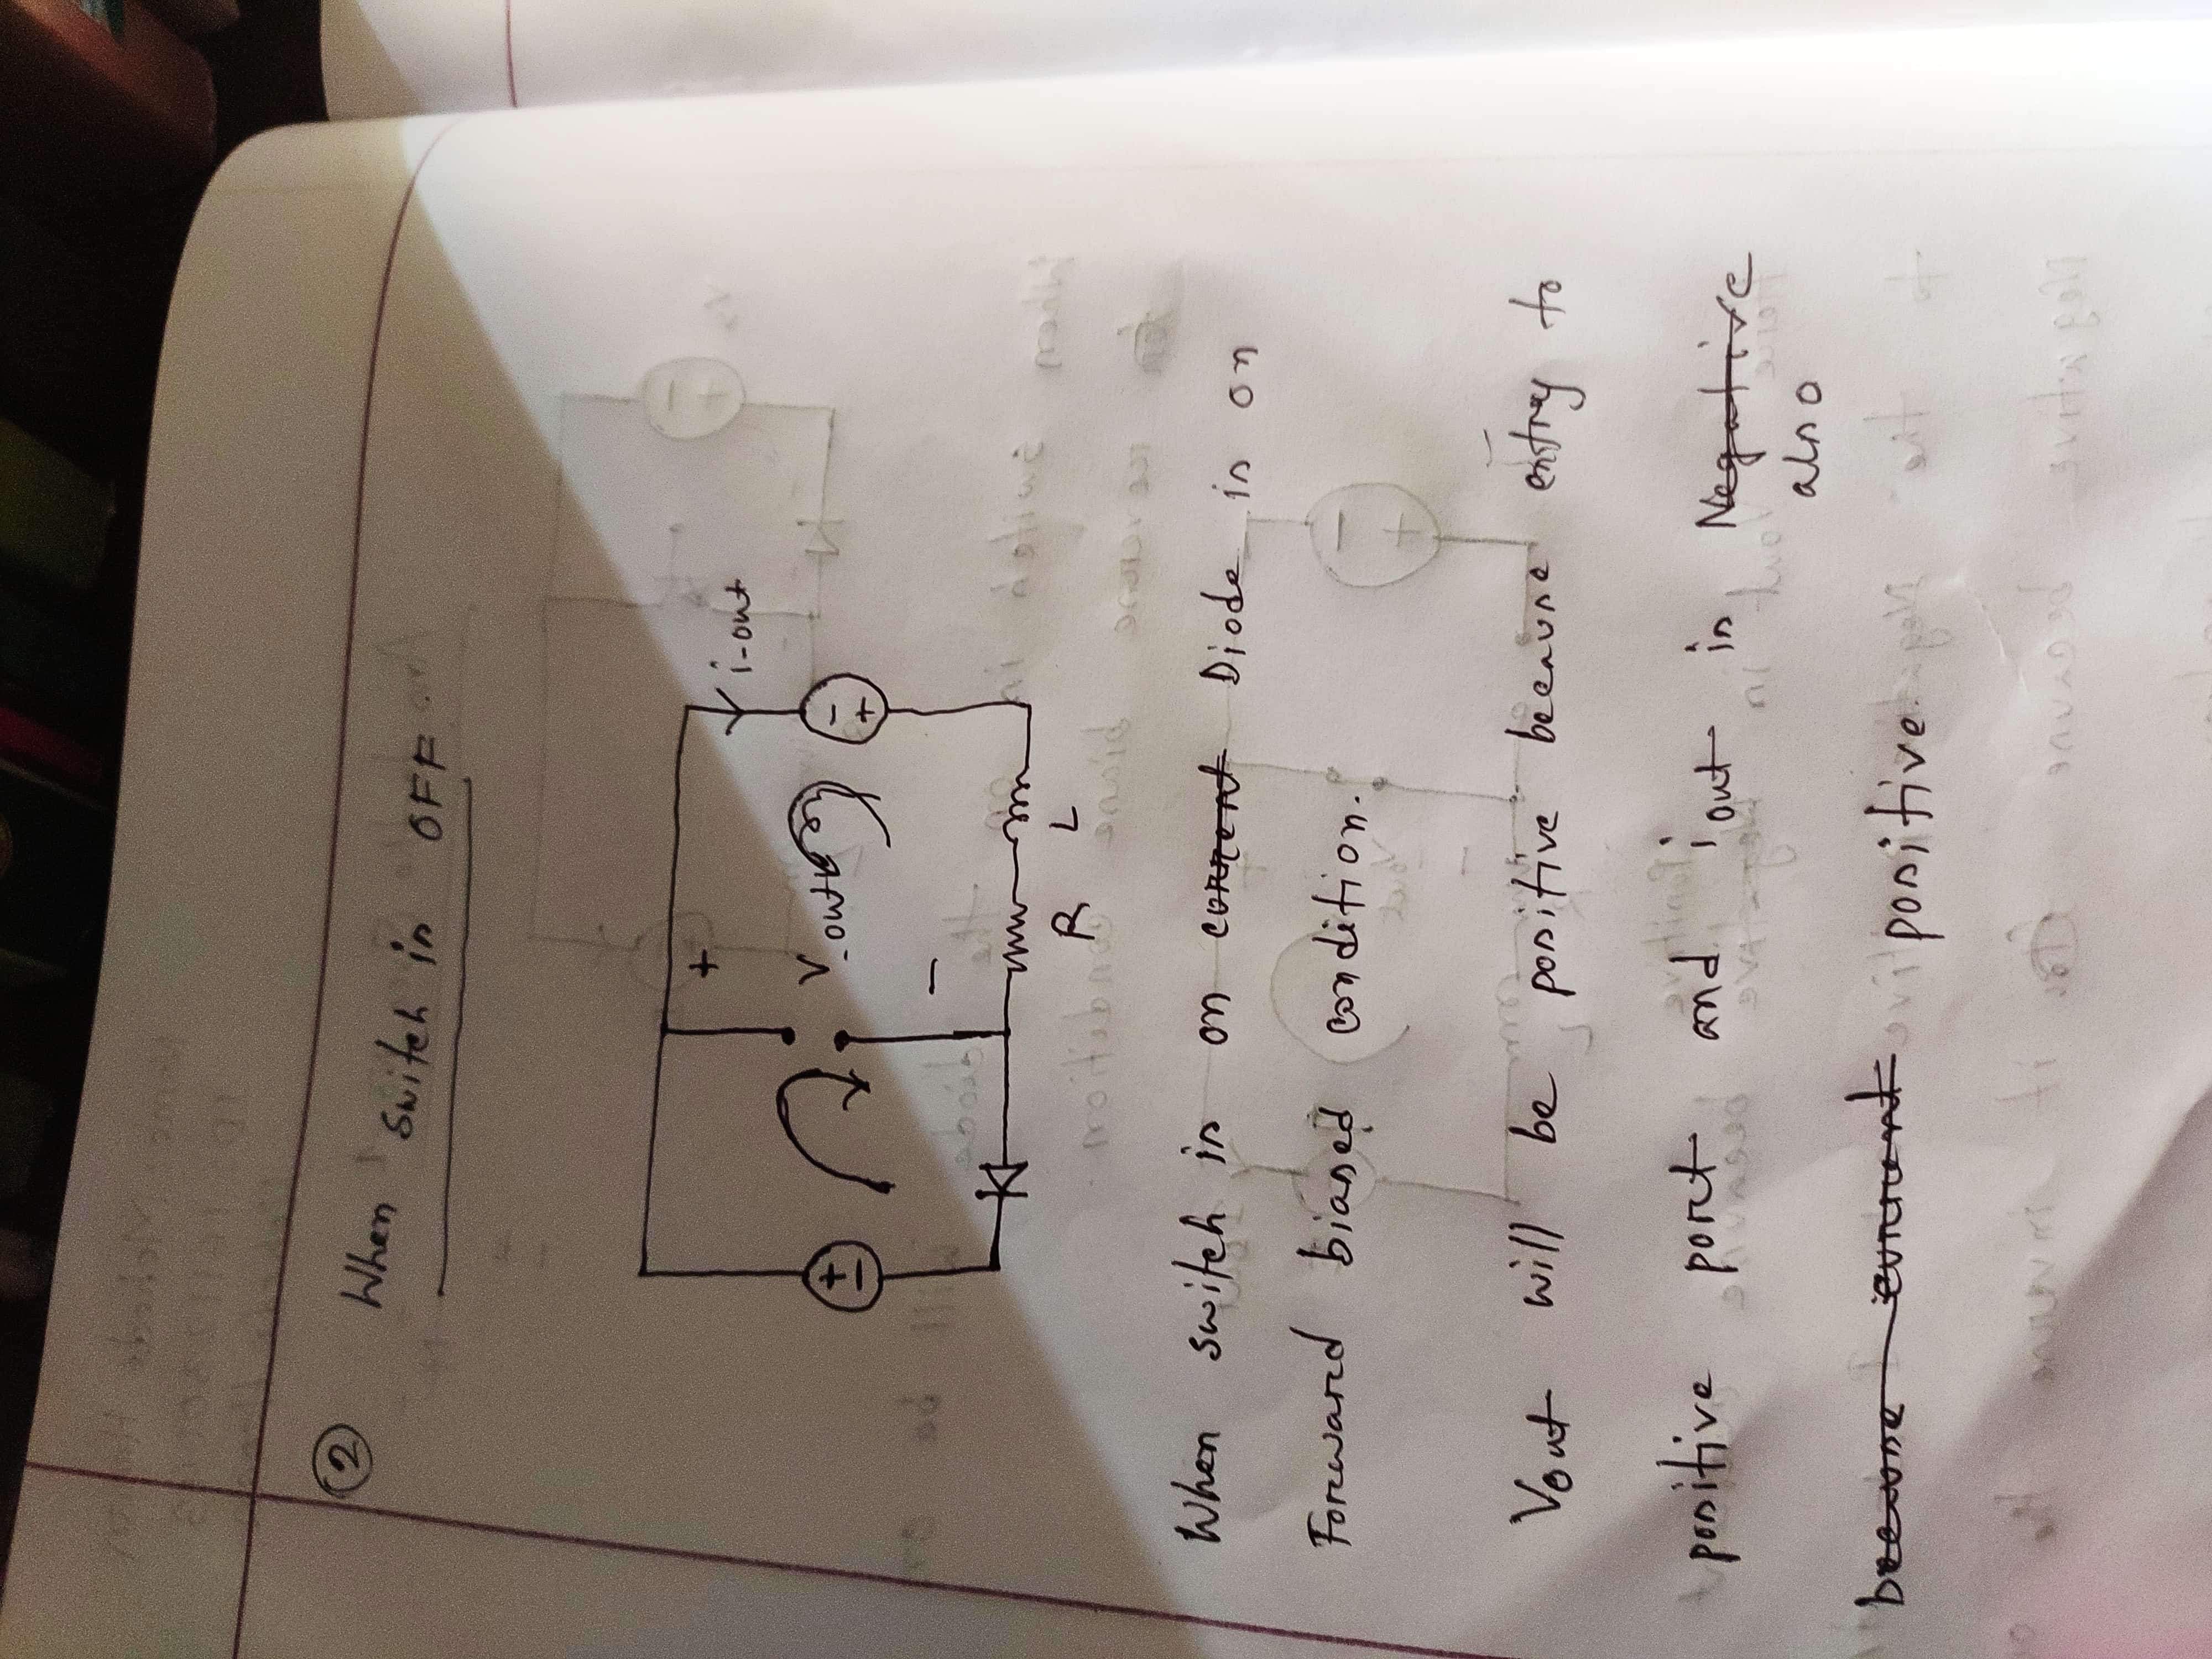 ② When switch in OFF
+
V-out
-
i-out
+
-
-
+
R L
When switch in on current Diode in on
Forward biased condition.
Vout will be positive because entry to
positive port and i out in Negative
also
become current positive.